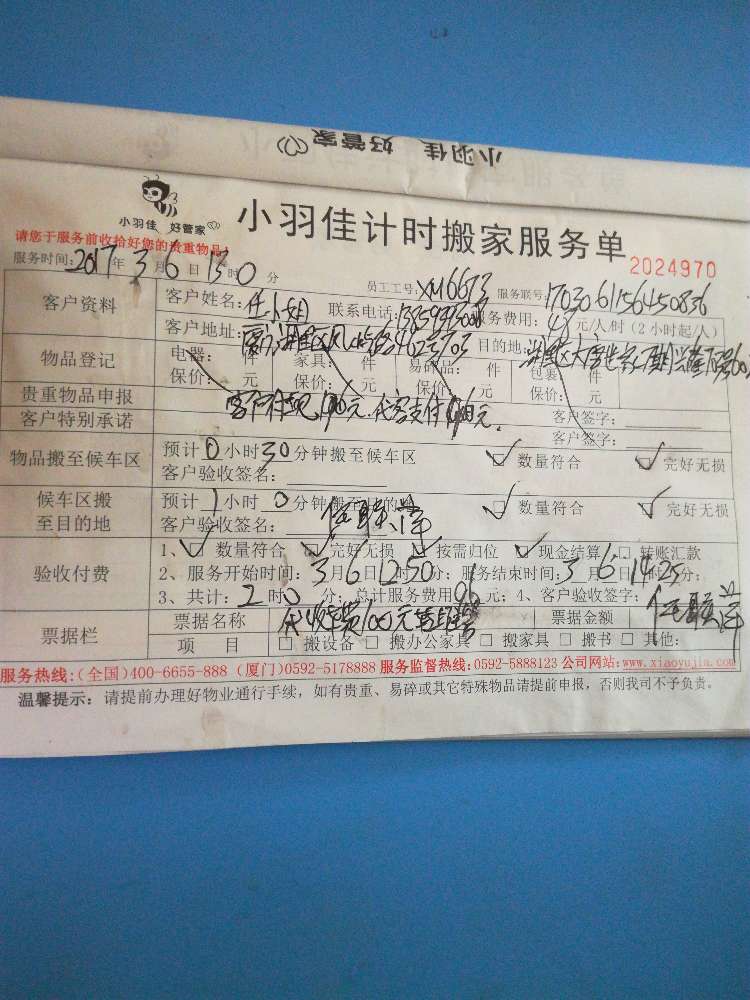 小羽佳 好管家
小羽佳 好管家
小羽佳计时搬家服务单
2024970
请您于服务前收拾好您的贵重物品!
服务时间: 2017年3月6日13时0分 员工工号: XM6673 服务联号: 1703061156450836
客户资料 客户姓名: 任小姐 联系电话: 服务费用: 48元/人/时 (2小时起/人)
客户地址: 目的地:
物品登记 电器: 件 家具: 件 易碎品: 件 包裹 件
保价: 元 保价: 元 保价: 元 保价: 元
贵重物品申报 客户签字:
客户特别承诺 客户签字:
物品搬至候车区 预计0小时30分钟搬至候车区 ✓ 数量符合 ✓ 完好无损
客户验收签名:
候车区搬至目的地 预计1小时0分钟搬至目的地 ✓ 数量符合 ✓ 完好无损
客户验收签名:
验收付费 1、✓ 数量符合 ✓ 完好无损 ✓ 按需归位 ✓ 现金结算 □ 转账汇款
2、服务开始时间: 3月6日12时50分; 服务结束时间: 3月6日14时25分;
3、共计: 2时0分; 总计服务费用96元; 4、客户验收签字:
票据栏 票据名称 票据金额
项 目 □ 搬设备 □ 搬办公家具 □ 搬家具 □ 搬书 □ 其他:
服务热线: (全国)400-6655-888 (厦门)0592-5178888 服务监督热线: 0592-5888123 公司网站: www.xiaoyujia.com
温馨提示: 请提前办理好物业通行手续, 如有贵重、易碎或其它特殊物品请提前申报, 否则我司不予负责。